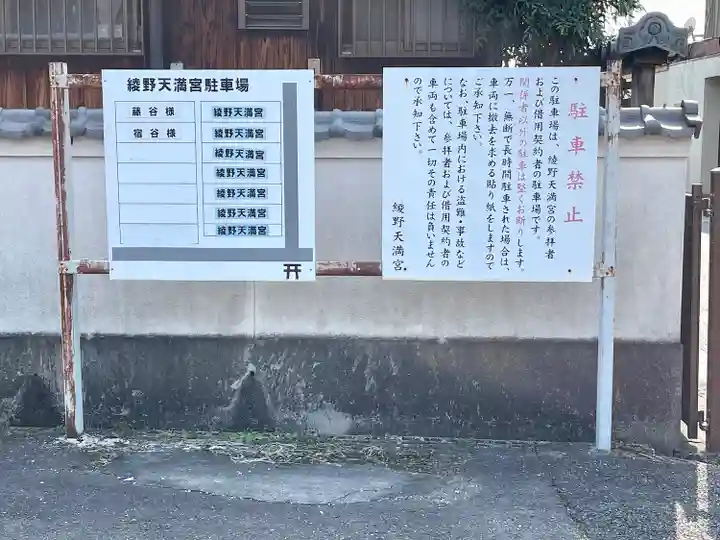 綾野天満宮駐車場
藤谷様
宿谷様
綾野天満宮
綾野天満宮
綾野天満宮
綾野天満宮
綾野天満宮
綾野天満宮
綾野天満宮
駐車禁止
この駐車場は、綾野天満宮の参拝者
および借用契約者の駐車場です。
関係者以外の駐車は堅くお断りします。
万一、無断で長時間駐車された場合は、
車両に撤去を求める貼り紙をしますので
ご承知下さい。
なお、駐車場内における盗難・事故など
については、参拝者および借用契約者の
車両も含めて一切その責任は負いません
ので承知下さい。
綾野天満宮